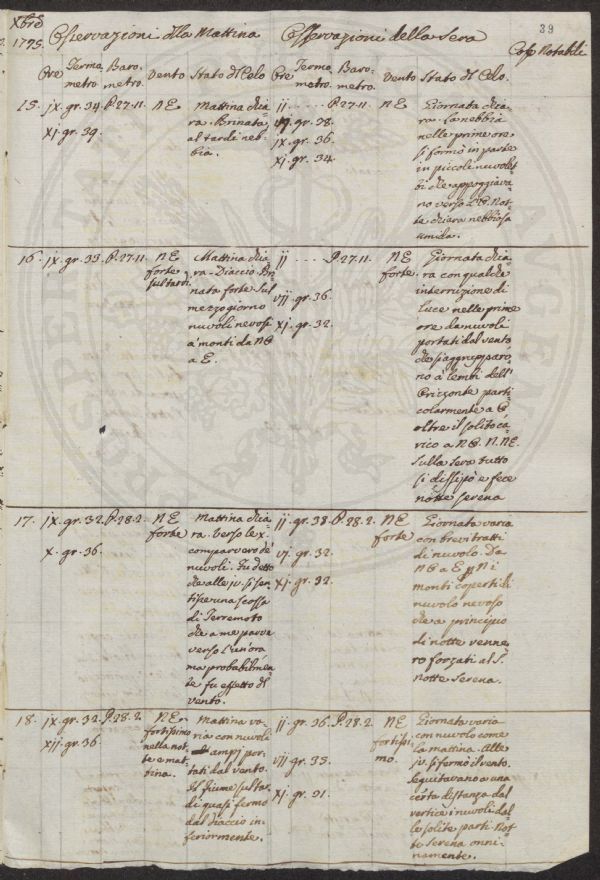 39
Xbre
1795.
Osservazioni della Mattina
Osservazioni della Sera
Cose Notabili
Ore Termo-metro. Baro-metro. Vento Stato del Celo
Ore Termo-metro. Baro-metro. Vento Stato del Celo.
15. jx. gr. 34. P. 27. 11. NE
xj. gr. 39.
Mattina chia
ra. Brinata
al tardi neb-
bia.
ij ..... P. 27. 11. NE
gr. 38.
jx. gr. 36.
xj. gr. 34.
Giornata chia
ra. La nebbia
nelle prime ore
si formò in parte
in piccoli nuvolet
ti che appoggiava-
no verso l'O. Not-
te chiara nebbiosa
umida.
16. jx. gr. 33. P. 27. 11. NE
forte
sul tardi.
Mattina chia
ra. Diaccio. Bri
nata forte. Sul
mezzogiorno
nuvoli nevosi
a' monti da NO
a E.
ij .... P. 27. 11. NE
forte.
vij. gr. 36.
xj. gr. 32.
Giornata chia
ra con qualche
interruzione di
luce nelle prime
ore da nuvoli
portati dal vento
che s'aggrupparo-
no a' lembi dell'
Orizzonte parti
colarmente a O
oltre il solito ca-
rico a NO. N. NE.
Sulla sera tutto
si dissipò e fece
notte serena
17. jx. gr. 32. P. 28. 2. NE
forte
x. gr. 36.
Mattina chia
ra. Verso le x.
comparvero de'
nuvoli. Fu detto
che alle jv. si sen
tisse una scossa
di Terremoto
che a me parve
verso l'un'ora
ma probabilmen
te fu effetto del
vento.
ij. gr. 38. P. 28. 2. NE
forte
vj. gr. 32.
xj. gr. 32.
Giornata varia
con brevi tratti
di nuvolo. Da
NO a E p N i
monti coperti di
nuvolo nevoso
che a principio
di notte venne-
ro forzati al S.
notte serena.
18. jx. gr. 32. P. 28. 2. NE
fortissimo
nella not-
te e mat-
tina.
xii. gr. 36.
Mattina va-
ria con nuvoli
ampj por-
tati dal vento.
Il fiume sulta-
di quasi fermo
dal diaccio in-
feriormente.
ij. gr. 36. P. 28. 2. NE
fortissi-
mo.
vij gr. 33.
xj. gr. 31.
Giornata varia
con nuvolo come
la mattina. Alle
jv. si fermò il vento.
Seguitavano a una
certa distanza dal
vertice i nuvoli dal
le solite parti. Not
te serena onni-
namente.